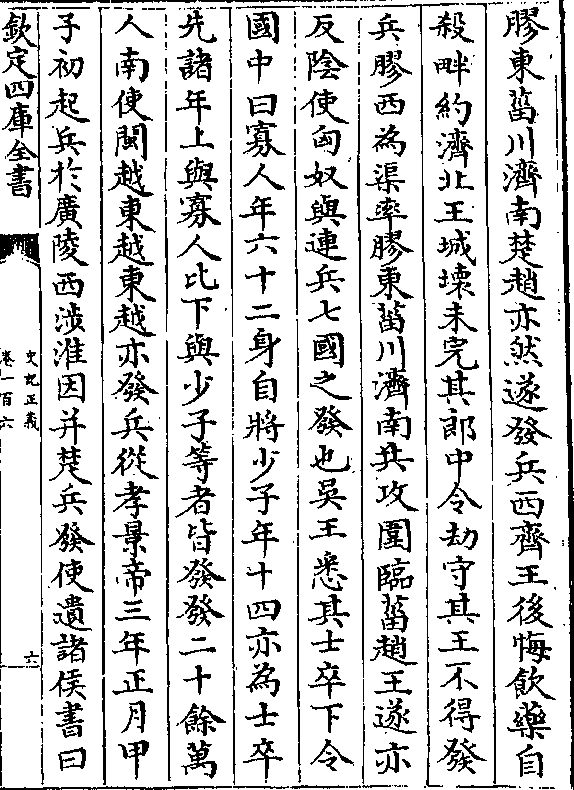 膠東菑川濟南楚趙亦然遂發兵西齊王後悔飲藥自
殺畔約濟北王城壞未完其郎中令劫守其王不得發
兵膠西為渠率膠東菑川濟南共攻圍臨菑趙王遂亦
反陰使匈奴與連兵七國之發也吳王悉其士卒下令
國中曰寡人年六十二身自將少子年十四亦為士卒
先諸年上與寡人比下與少子等者皆發發二十餘萬
人南使閩越東越東越亦發兵從孝景帝三年正月甲
子初起兵於廣陵西涉淮因并楚兵發使遺諸侯書曰
欽定四庫全書
史記正義
卷一百六
六